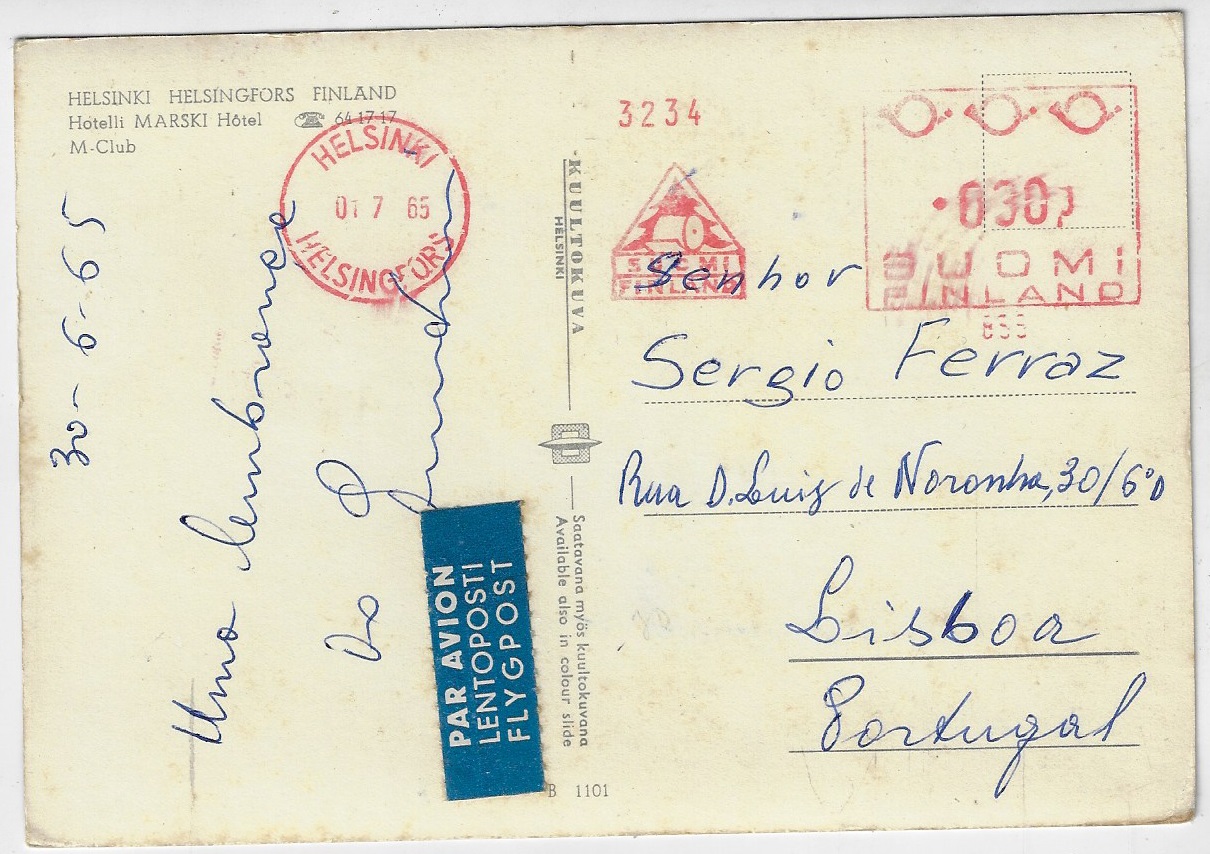 HELSINKI HELSINGFORS FINLAND
Hotelli MARSKI Hôtel ☎ 64 17 17
M-Club
HELSINKI
01 7 65
HELSINGFORS
30-6-65
Uma lembrança
do
PAR AVION
LENTOPOSTI
FLYGPOST
KUULTOKUVA
HELSINKI
Saatavana myös kuultokuvana
Available also in colour slide
B 1101
3234
SUOMI
FINLAND
030
SUOMI
FINLAND
Senhor
Sergio Ferraz
Rua D. Luiz de Noronha, 30/6º D
Lisboa
Portugal